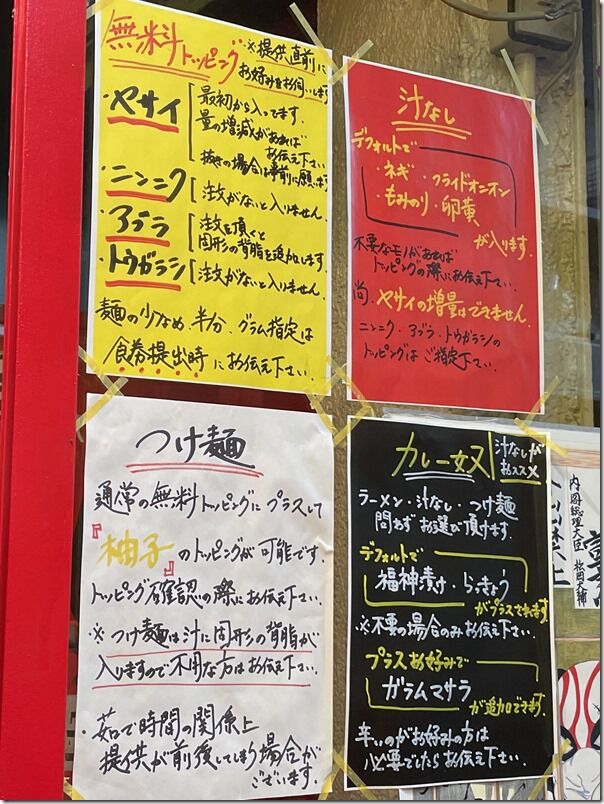 無料トッピング
※提供直前に
お好みをお伺いします
・ヤサイ
最初から入ってます。
量の増減があれば
お伝え下さい
抜きの場合は事前に願います
・ニンニク
注文がないと入りません。
・アブラ
注文を頂くと
固形の背脂を追加します。
・トウガラシ
注文がないと入りません。
麺の少なめ、半分、グラム指定は
食券提出時にお伝え下さい。
汁なし
デフォルトで
・ネギ・フライドオニオン
・もみのり・卵黄
が入ります。
不要なモノがあれば
トッピングの際にお伝え下さい。
尚、ヤサイの増量はできません。
ニンニク・アブラ・トウガラシの
トッピングはご指定下さい。
つけ麺
通常の無料トッピングにプラスして
『柚子』のトッピングが可能です。
トッピング確認の際にお伝え下さい。
※つけ麺は汁に固形の背脂が
入りますので不用な方はお伝え下さい。
・茹で時間の関係上
提供が前後してしまう場合が
ございます。
カレー奴
汁なしが
おススメ
ラーメン・汁なし・つけ麺
問わずお選び頂けます。
デフォルトで
福神漬け・らっきょう
がプラスされます
※不要の場合のみお伝え下さい。
プラスお好みで
ガラムマサラ
が追加できます。
辛いのがお好みの方は
必要でしたらお伝え下さい。
内閣総理大臣